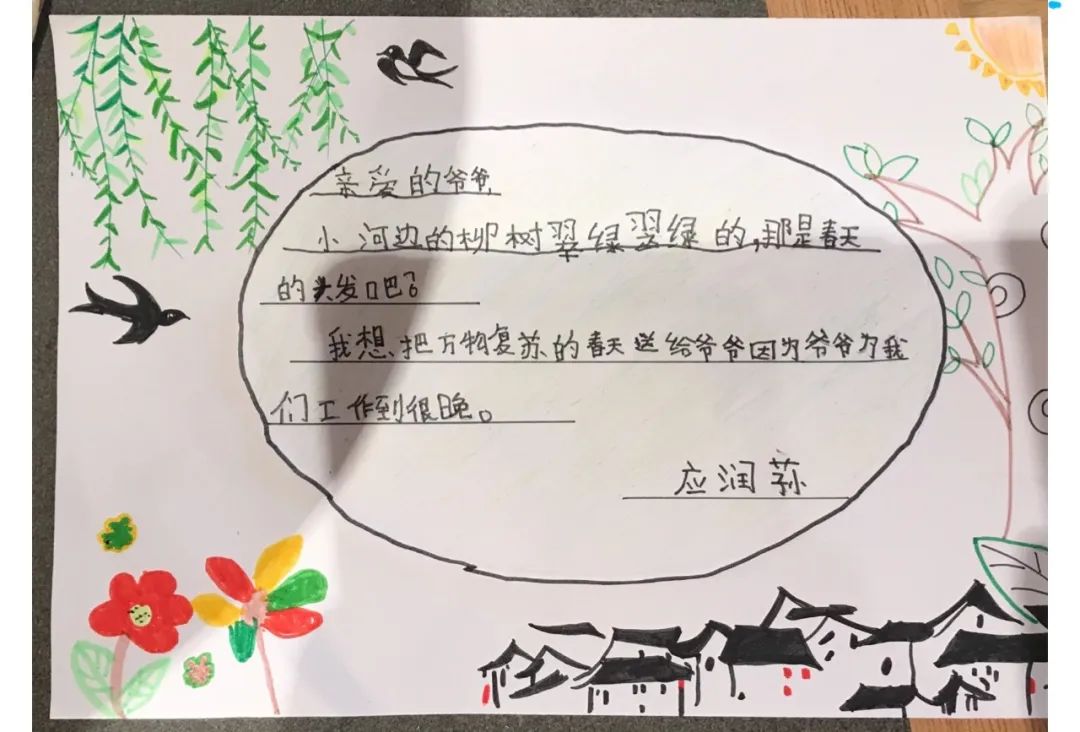 亲爱的爷爷
小河边的柳树翠绿翠绿的,那是春天
的头发吧?
我想把万物复苏的春天送给爷爷因为爷爷为我
们工作到很晚。
应润荪